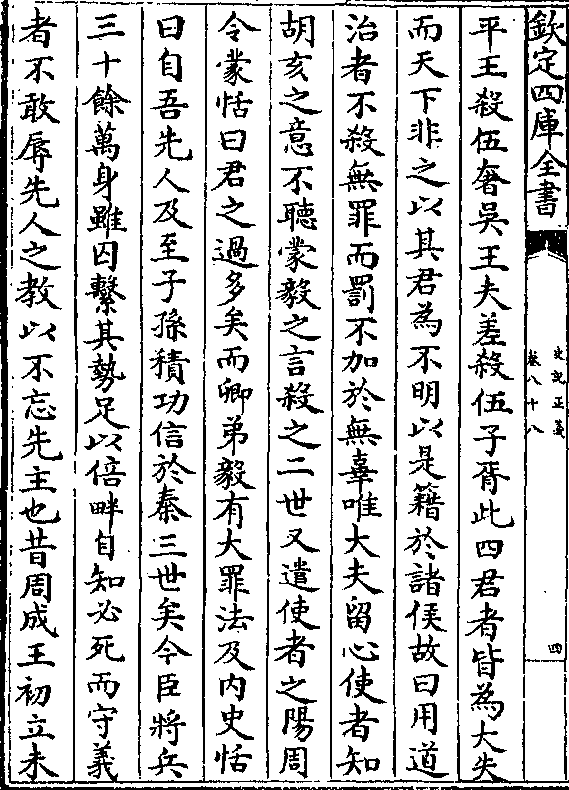 欽定四庫全書
史記正義
卷八十八
四
平王殺伍奢吳王夫差殺伍子胥此四君者皆為大失
而天下非之以其君為不明以是籍於諸侯故曰用道
治者不殺無罪而罰不加於無辜唯大夫留心使者知
胡亥之意不聽蒙毅之言殺之二世又遣使者之陽周
令蒙恬曰君之過多矣而卿弟毅有大罪法及內史恬
曰自吾先人及至子孫積功信於秦三世矣今臣將兵
三十餘萬身雖囚繫其勢足以倍畔自知必死而守義
者不敢辱先人之教以不忘先主也昔周成王初立未